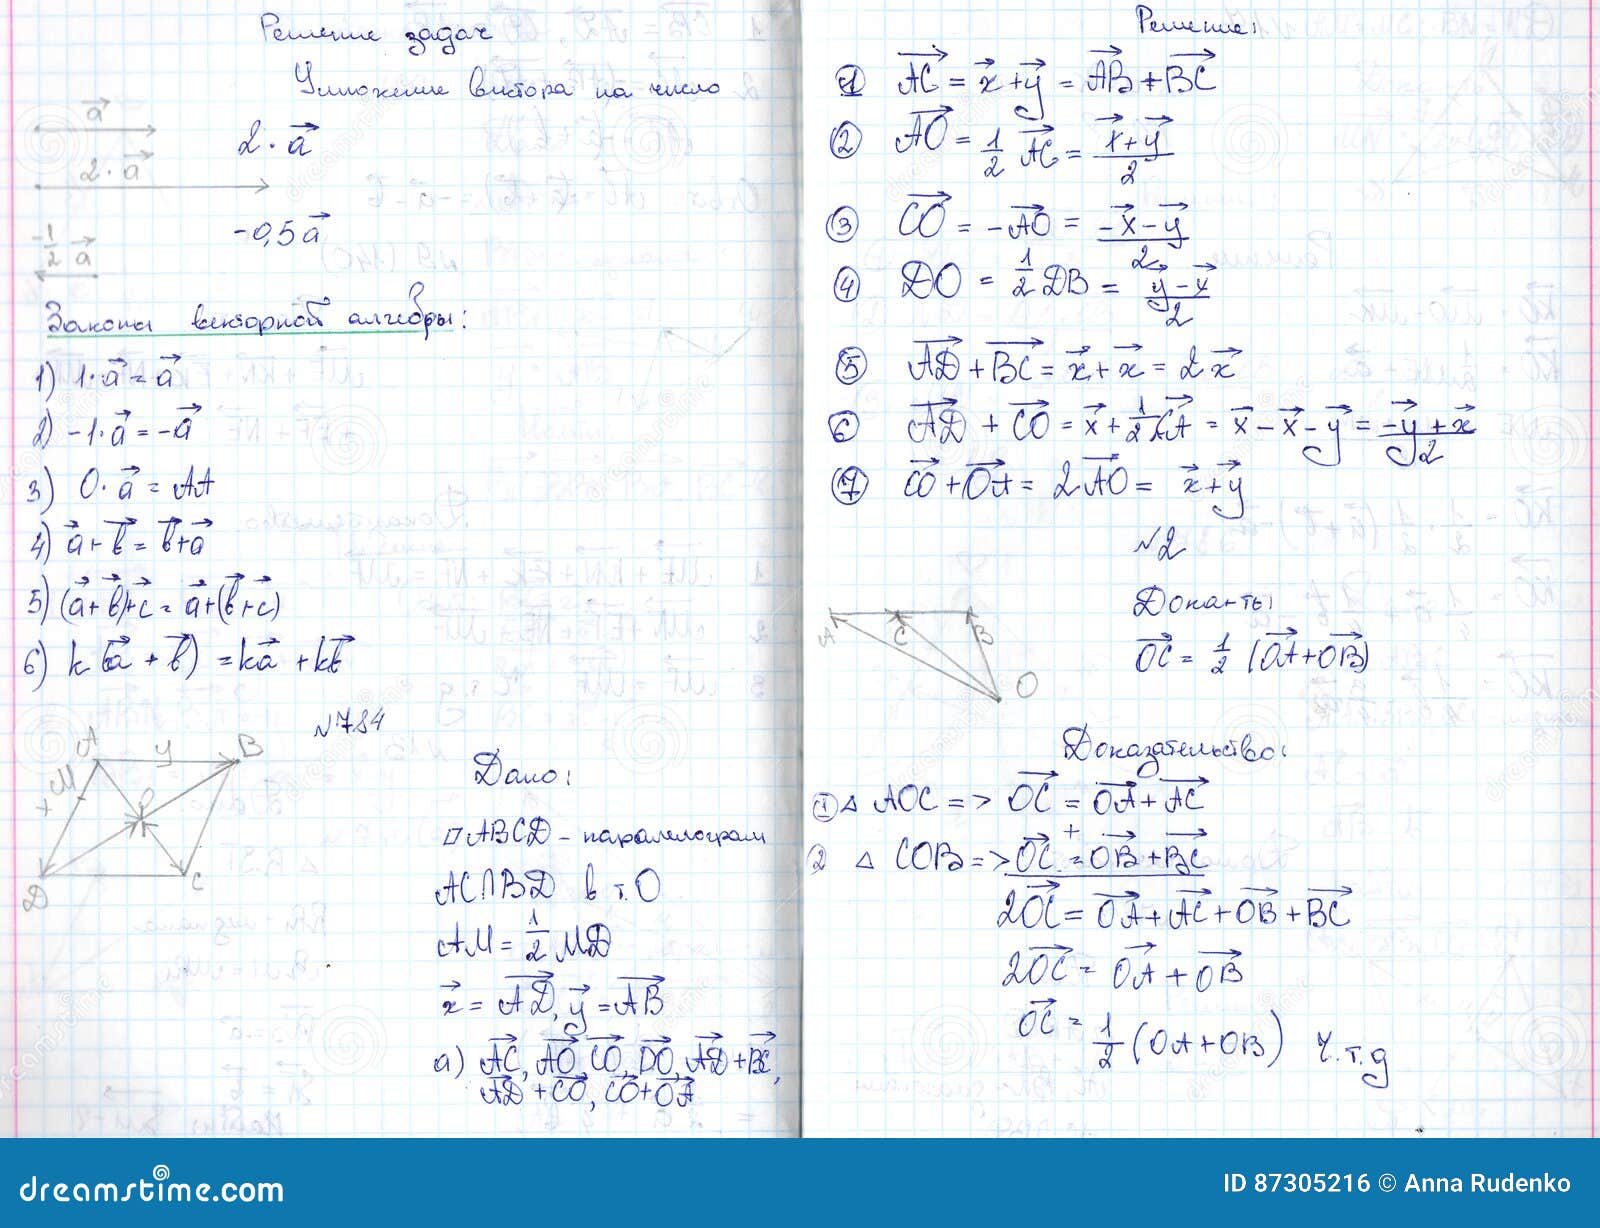 Решение задач
Умножение вектора на число
a⃗
2·a⃗
2·a⃗
-0,5a⃗
-1/2 a⃗
Законы векторной алгебры:
1) 1·a⃗ = a⃗
2) -1·a⃗ = -a⃗
3) 0·a⃗ = AA
4) a⃗+b⃗ = b⃗+a⃗
5) (a⃗+b⃗)+c⃗ = a⃗+(b⃗+c⃗)
6) k(a⃗+b⃗) = ka⃗+kb⃗
№784
A y B
M
x O
D C
Дано:
▱ABCD – паралелограм
AC∩BD в т.O
AM = 1/2 MD
x⃗ = AD⃗, y⃗ = AB⃗
а) AC⃗, AO⃗, CO⃗, DO⃗, AD⃗+BC⃗,
AD⃗+CO⃗, CO⃗+OA⃗
Решение:
1 AC⃗ = x⃗+y⃗ = AB⃗+BC⃗
2 AO⃗ = 1/2 AC⃗ = (x⃗+y⃗)/2
3 CO⃗ = -AO⃗ = (-x⃗-y⃗)/2
4 DO⃗ = 1/2 DB = (y⃗-x⃗)/2
5 AD⃗+BC⃗ = x⃗+x⃗ = 2x⃗
6 AD⃗+CO⃗ = x⃗+1/2 CA⃗ = x⃗-x⃗-y⃗ = (-y⃗+x⃗)/2
7 CO⃗+OA⃗ = 2AO⃗ = x⃗+y⃗
№2
A C B
O
Док-ть:
OC⃗ = 1/2 (OA⃗+OB⃗)
Доказательство:
1 △ AOC => OC⃗ = OA⃗+AC⃗
+
2 △ COB => OC⃗ = OB⃗+BC⃗
2OC⃗ = OA⃗+AC⃗+OB⃗+BC⃗
2OC⃗ = OA⃗+OB⃗
OC⃗ = 1/2 (OA+OB) ч.т.д
dreamstime.com
ID 87305216 © Anna Rudenko